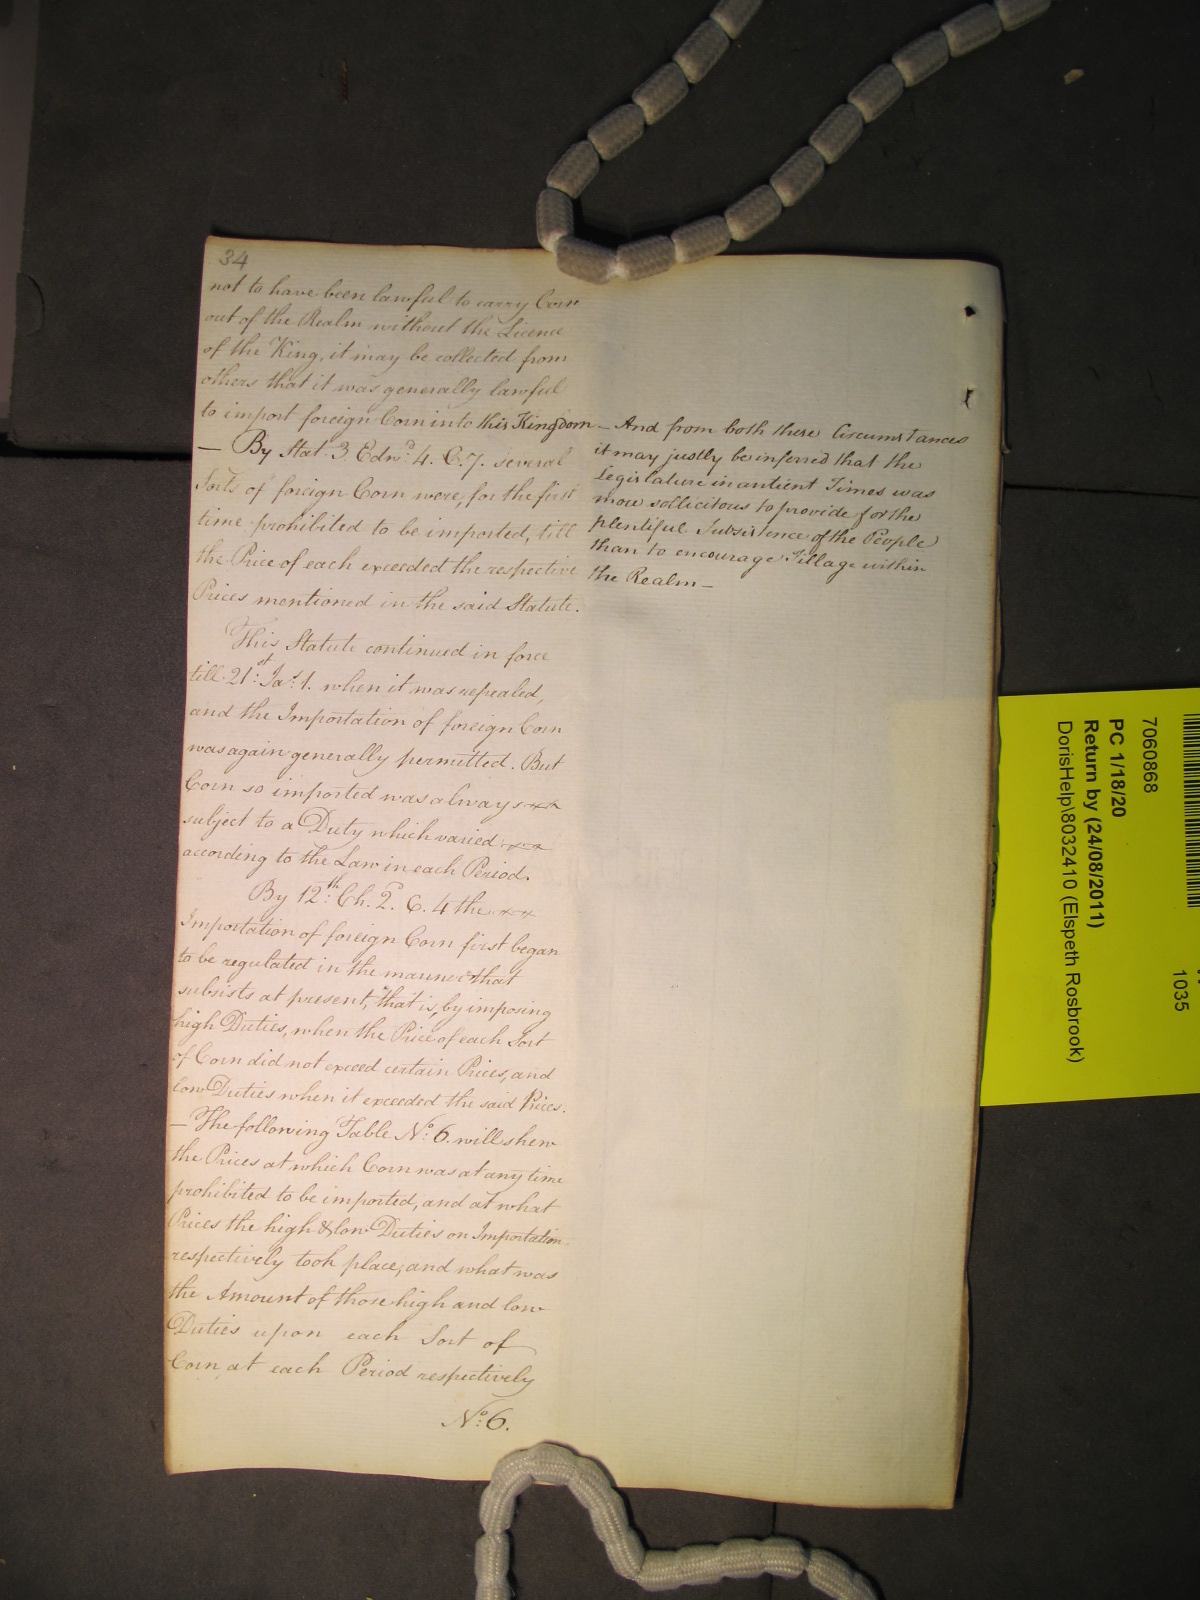 34
not to have been lawful to carry Corn
out of the Realm without the Licence
of the King, it may be collected from
others that it was generally lawful
to import foreign Corn into this Kingdom
— By Stat. 3 Edwd. 4. C. 7. several
Sorts of foreign Corn were, for the first
time prohibited to be imported, till
the Price of each exceeded the respective
Prices mentioned in the said Statute.
This Statute continued in force
till 21st: Jas. 1. when it was repealed,
and the Importation of foreign Corn
was again generally permitted. But
Corn so imported was always
subject to a Duty which varied
according to the Law in each Period.
By 12th: Ch. 2d. C. 4 the
Importation of foreign Corn first began
to be regulated in the manner that
subsists at present, that is, by imposing
high Duties, when the Price of each Sort
of Corn did not exceed certain Prices, and
low Duties when it exceeded the said Prices.
— The following Table No: 6. will shew
the Prices at which Corn was at any time
prohibited to be imported, and at what
Prices the high & low Duties on Importation
respectively took place, and what was
the Amount of those high and low
Duties upon each Sort of
Corn at each Period respectively
No: 6.
— And from both these Circumstances
it may justly be inferred that the
Legislature in antient Times was
more sollicitous to provide for the
plentiful Subsistence of the People
than to encourage Tillage within
the Realm —
1035
7060868
PC 1/18/20
Return by (24/08/2011)
DorisHelp\8032410 (Elspeth Rosbrook)